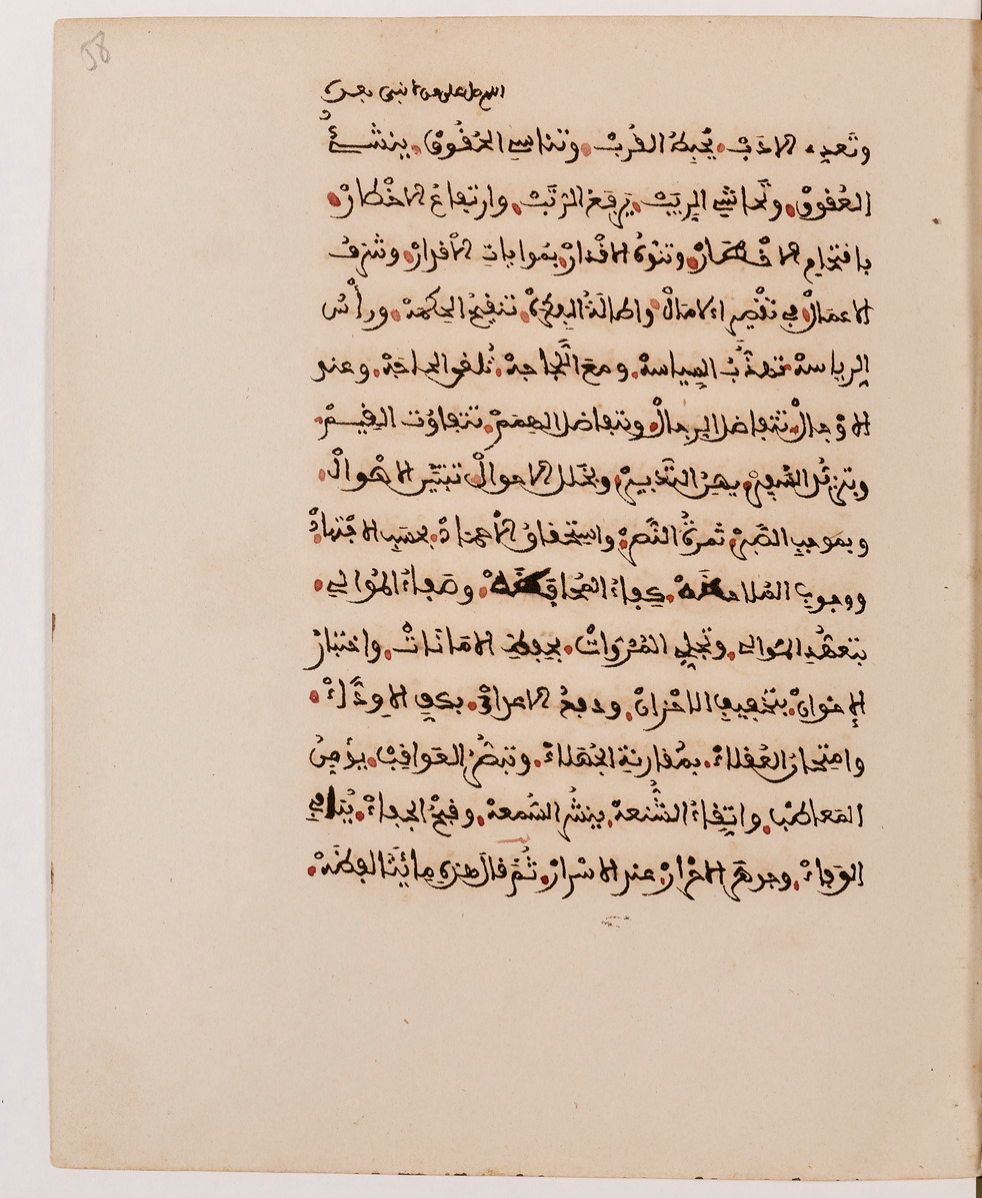 58
اللهم صل على من لا نبي بعده
وتَعدِي الادَبْ. يُحبِطُ القُرَبْ. وتناسِي الحُقُوقْ. ينشِئُ
العُقوقْ. وتَحَاشِي الرِيَبْ. يَرفَعُ الرُتَبْ. وارتفاعُ الاخْطارْ.
باقتحامِ الاخْطارْ. وتنوُهُ الاقْدارْ. بمُواتاتِ الاقْدارْ. وشرَفُ
الاعمَالْ. في تقْصِيرِ الامَالْ. واطالَةُ الفِكرَةْ. تنقِيحُ الحِكمَةْ. ورأْسُ
الرياسةْ تهذُّبُ السِياسةْ. ومعَ اللَّجَاجةْ. تُلغى الحاجَةْ. وعند
الاوْجالْ. تتفاضَلُ الرِجالْ. وبتفاضل الهِمَمْ. تتفاوُت القِيَمْ.
وبتزيُّدِ السَّفِيرْ. يهِنُ التَّدْبِيرْ. وبخَلَل الاحوالْ. تتبيَّن الاهْوالْ.
وبموجبِ الصَّبْرْ. ثمرَةُ النَّصْرْ. واستحقاقُ الاحمَادْ. بحسَبِ الاجْتِهادْ.
ووجوبِ المُلاحظَةْ. كِفاءُ المُحَافَظَةْ. وصَفاءُ المُوالِي.
بتعهُّدِ المَوالي. وتَحلِّي المُرُواتْ. بحِفظِ الامَانَاتْ. واختبَارْ
الاخوانْ. بتخفِيفِ الاحْزانْ. ودفعُ الاعدائْ. بكفِ الاودَّاءْ.
وامتِحَانُ العُقلاءْ. بمُقارنةِ الجُهَلاءْ. وتبصُّرُ العَواقِبْ. يؤمِنُ
المَعاطِبْ. واتِقاءُ الشُّنعةْ. ينشُر السُمعةْ. وقبحُ الجفاءْ. يُنَافي
الوَفاءْ. وجوهَرُ الاحْرارْ. عند الاسْرارْ. ثُمَّ قالَ هذِهِ مِائَتَا لفظَةْ.